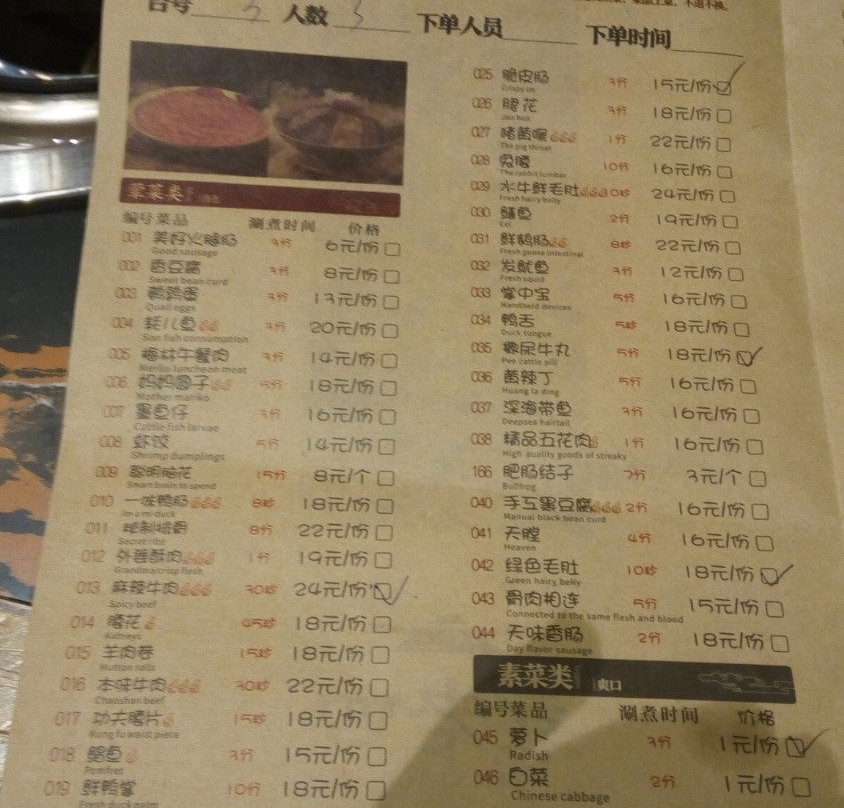 台号 人数 下单人员 下单时间
荤菜类
编号菜品 涮煮时间 价格
001 美好火腿肠 3分 6元/份
Good sausage
002 香豆腐 3分 8元/份
Sweet bean curd
003 鹌鹑蛋 3分 13元/份
Quail eggs
004 耗儿鱼 3分 20元/份
Sian fish consumption
005 梅林午餐肉 3分 14元/份
Merlin luncheon meat
006 妈妈圆子 5分 18元/份
Mother mariko
007 墨鱼仔 3分 16元/份
Cuttle fish larvae
008 虾饺 5分 14元/份
Shrimp dumplings
009 聪明脑花 15分 8元/个
Smart brain to spend
010 一味鸭肠 8秒 18元/份
011 秘制排骨 8分 22元/份
Secret ribs
012 外婆酥肉 1分 19元/份
Grandma crisp flesh
013 麻辣牛肉 30秒 24元/份
Spicy beef
014 腰花 45秒 18元/份
Kidneys
015 羊肉卷 15秒 18元/份
Mutton rolls
016 本味牛肉 30秒 22元/份
Chaoshan beef
017 功夫腰片 15秒 18元/份
Kong fu waist piece
018 鲳鱼 3分 15元/份
Pomfret
019 鲜鸭掌 10分 18元/份
Fresh duck palm
025 脆皮肠 3分 15元/份
Crispy in
026 腱花 3分 18元/份
Jan hua
027 猪黄喉 1分 22元/份
The pig throat
028 兔腰 10分 16元/份
The rabbit lumbar
029 水牛鲜毛肚 30秒 24元/份
Fresh hairy belly
030 鳝鱼 2分 19元/份
Eel
031 鲜鹅肠 8秒 22元/份
Fresh goose intestinal
032 发鱿鱼 3分 12元/份
Fresh squid
033 掌中宝 5分 16元/份
Handheld devices
034 鸭舌 5秒 18元/份
Duck tongue
035 撒尿牛丸 5分 18元/份
Pee cattle pill
036 黄辣丁 5分 16元/份
Huang la ding
037 深海带鱼 3分 16元/份
Deepsea hairtail
038 精品五花肉 1分 16元/份
High auality goods of streaky
166 肥肠结子 7分 3元/个
Bullfrog
040 手工黑豆腐 2分 16元/份
Manual black bean curd
041 天膛 4分 16元/份
Heaven
042 绿色毛肚 10秒 18元/份
Green hairy belly
043 骨肉相连 5分 15元/份
Connected to the same flesh and blood
044 天味香肠 2分 18元/份
Day flavor sausage
素菜类 爽口
编号菜品 涮煮时间 价格
045 萝卜 3分 1元/份
Radish
046 白菜 2分 1元/份
Chinese cabbage